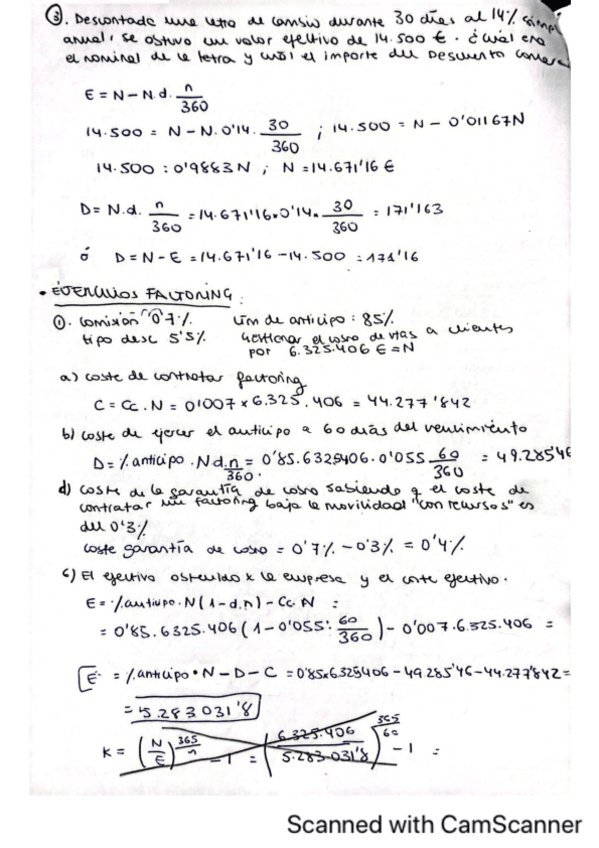 ③. Descontada una letra de cambio durante 30 días al 14% simpl
anual, se obtuvo un valor efectivo de 14.500 €. ¿cuál era
el nominal de la letra y cuál el importe del Descuento comerc
E = N - N.d. n/360
14.500 = N - N. 0'14. 30/360 ; 14.500 = N - 0'01167N
14.500 : 0'9883N ; N = 14.671'16 €
D = N.d. n/360 = 14.671'16 x 0'14 x 30/360 = 171'163
ó D = N - E = 14.671'16 - 14.500 = 171'16
• EJERCICIOS FACTORING:
①. comisión 0'7%. Lím de anticipo: 85%
tipo desc 5'5% Gestionar el cobro de vtas a clientes
por 6.325.406 € = N
a) coste de contratar factoring
C = Cc . N = 0'007 x 6.325.406 = 44.277'842
b) coste de ejercer el anticipo a 60 días del vencimiento
D = % anticipo . N d. n/360 = 0'85. 6325406. 0'055 60/360 = 49.285'46
d) coste de la garantía de cobro sabiendo q el coste de
contratar factoring bajo la movilidad "con recursos" es
del 0'3%
coste garantía de cobro = 0'7% - 0'3% = 0'4%
c) El efectivo obtenido x la empresa y el coste efectivo.
E = % anticipo. N (1 - d.n) - Cc. N =
= 0'85. 6325.406 (1 - 0'055. 60/360) - 0'007. 6.325.406 =
E = % anticipo • N - D - C = 0'85x6.325406 - 49285'46 - 44.277'842 =
= 5.283031'8
K = (N/E)^365/n - 1 = (6.325.406/5.283.031'8)^365/60 - 1 =
Scanned with CamScanner